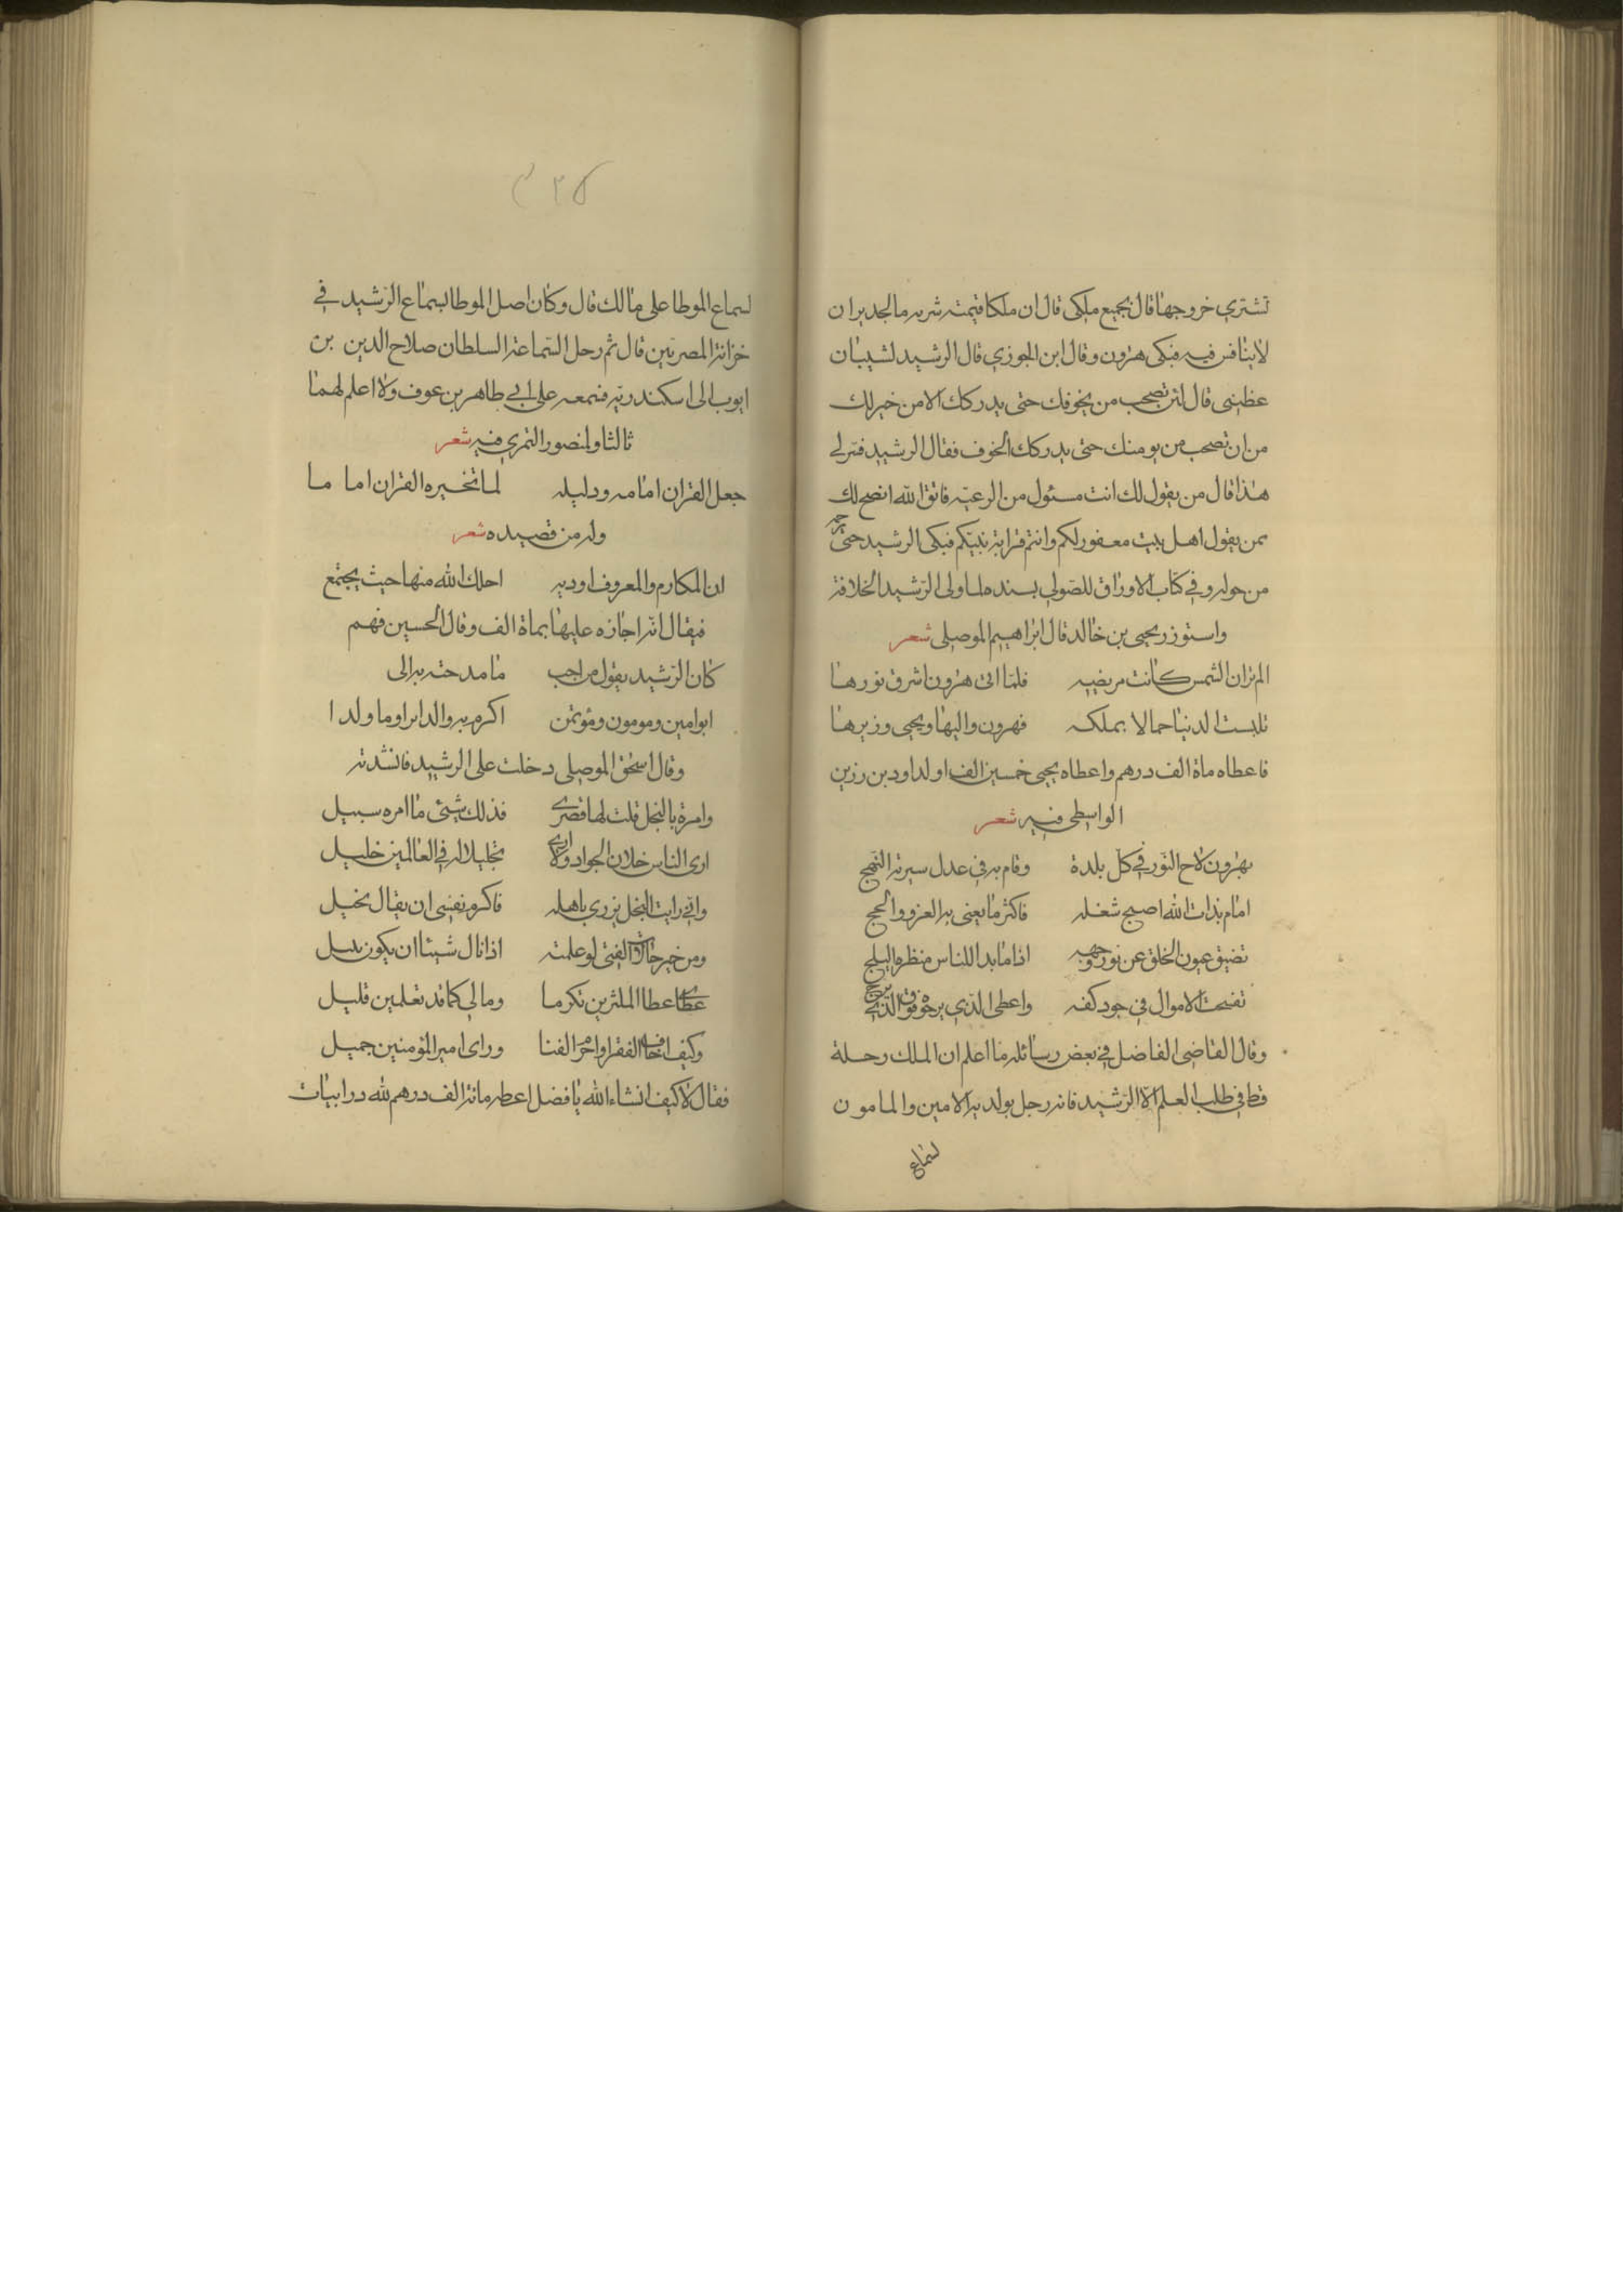 تشتري خروجها قال بجميع ملكي قال ان ملكا قيمته شربه ما لجدير ان
لا يتنافس فيه فبكى هرون وقال ابن الجوزي قال الرشيد لشيبان
عظني قال لئن تصحب من يخوفك حتى يدركك الامن خير لك
من ان تصحب من يومنك حتى يدركك الخوف فقال الرشيد فسر لي
هذا قال من يقول لك انت مسئول من الرعية فاتق الله انصح لك
ممن يقول اهل بيت مغفور لكم وانتم قرابة نبيكم فبكى الرشيد حتى رحمه
من حوله وفي كتاب الاوراق للصولي بسنده لما ولى الرشيد الخلافة
واستوزر يحيى بن خالد قال ابراهيم الموصلي شعر
الم تر ان الشمس كانت مريضيه فلما اتى هرون اشرق نورها
تلبست الدنيا جمالا بملكه فهرون واليها ويحيى وزيرها
فاعطاه ماة الف درهم واعطاه يحيى خمسين الف او لداود بن رزين
الواسطي فيه شعر
بهرون لاح النور في كل بلدة وقام به في عدل سيرته النهج
امام بذات الله اصبح شغله فاكثر ما يعنى به الغزو والحج
تضيق عيون الخلق عن نور وجهه اذا ما بدا للناس منظره البلج
تفسحت الامال في جود كفه واعطى الذي يرجوه فوق الذي يرجو
وقال القاضي الفاضل في بعض رسائله ما اعلم ان الملك رحلة
قط في طلب العلم الا الرشيد فانه رجل بولديه الامين والمامون
لسماع
٣٢٥
لسماع الموطا على مالك قال وكان اصل الموطا بسماع الرشيد في
خزانة المصريين قال ثم رحل لسماعه السلطان صلاح الدين بن
ايوب الى اسكندرية فسمعه على ابي طاهر بن عوف ولا اعلم لهما
ثالثا ولمنصور النمري فيه شعر
جعل القران امامه ودليله لما تخيره القران اما ما
وله من قصيده شعر
ان المكارم والمعروف اوديه احلك الله منها حيث يجتمع
فيقال انه اجازه عليها بماة الف وقال الحسين فهم
كان الرشيد يقول من احب ما مدحت به الى
ابو امين ومومون ومؤتمن اكرم به والدا برا وما ولدا
وقال اسحق الموصلي دخلت على الرشيد فانشدته
وامرة بالبخل قلت لها قصرى فذلك شئ ما امره سبيل
ارى الناس خلان الجواد ولا ارى بخيلا له في العالمين خليل
واني رايت البخل يزري باهله فاكرم نفسي ان يقال بخيل
ومن خير حالات الفتى لو علمته اذا نال شيئا ان يكون ينيل
عطاى عطا المكثرين تكرما ومالي كما قد تعلمين قليل
وكيف اخاف الفقر او احرم الغنا وراى امير المؤمنين جميل
فقال لا كيف انشاء الله يا فضل اعطه مائة الف درهم لله در ابيات